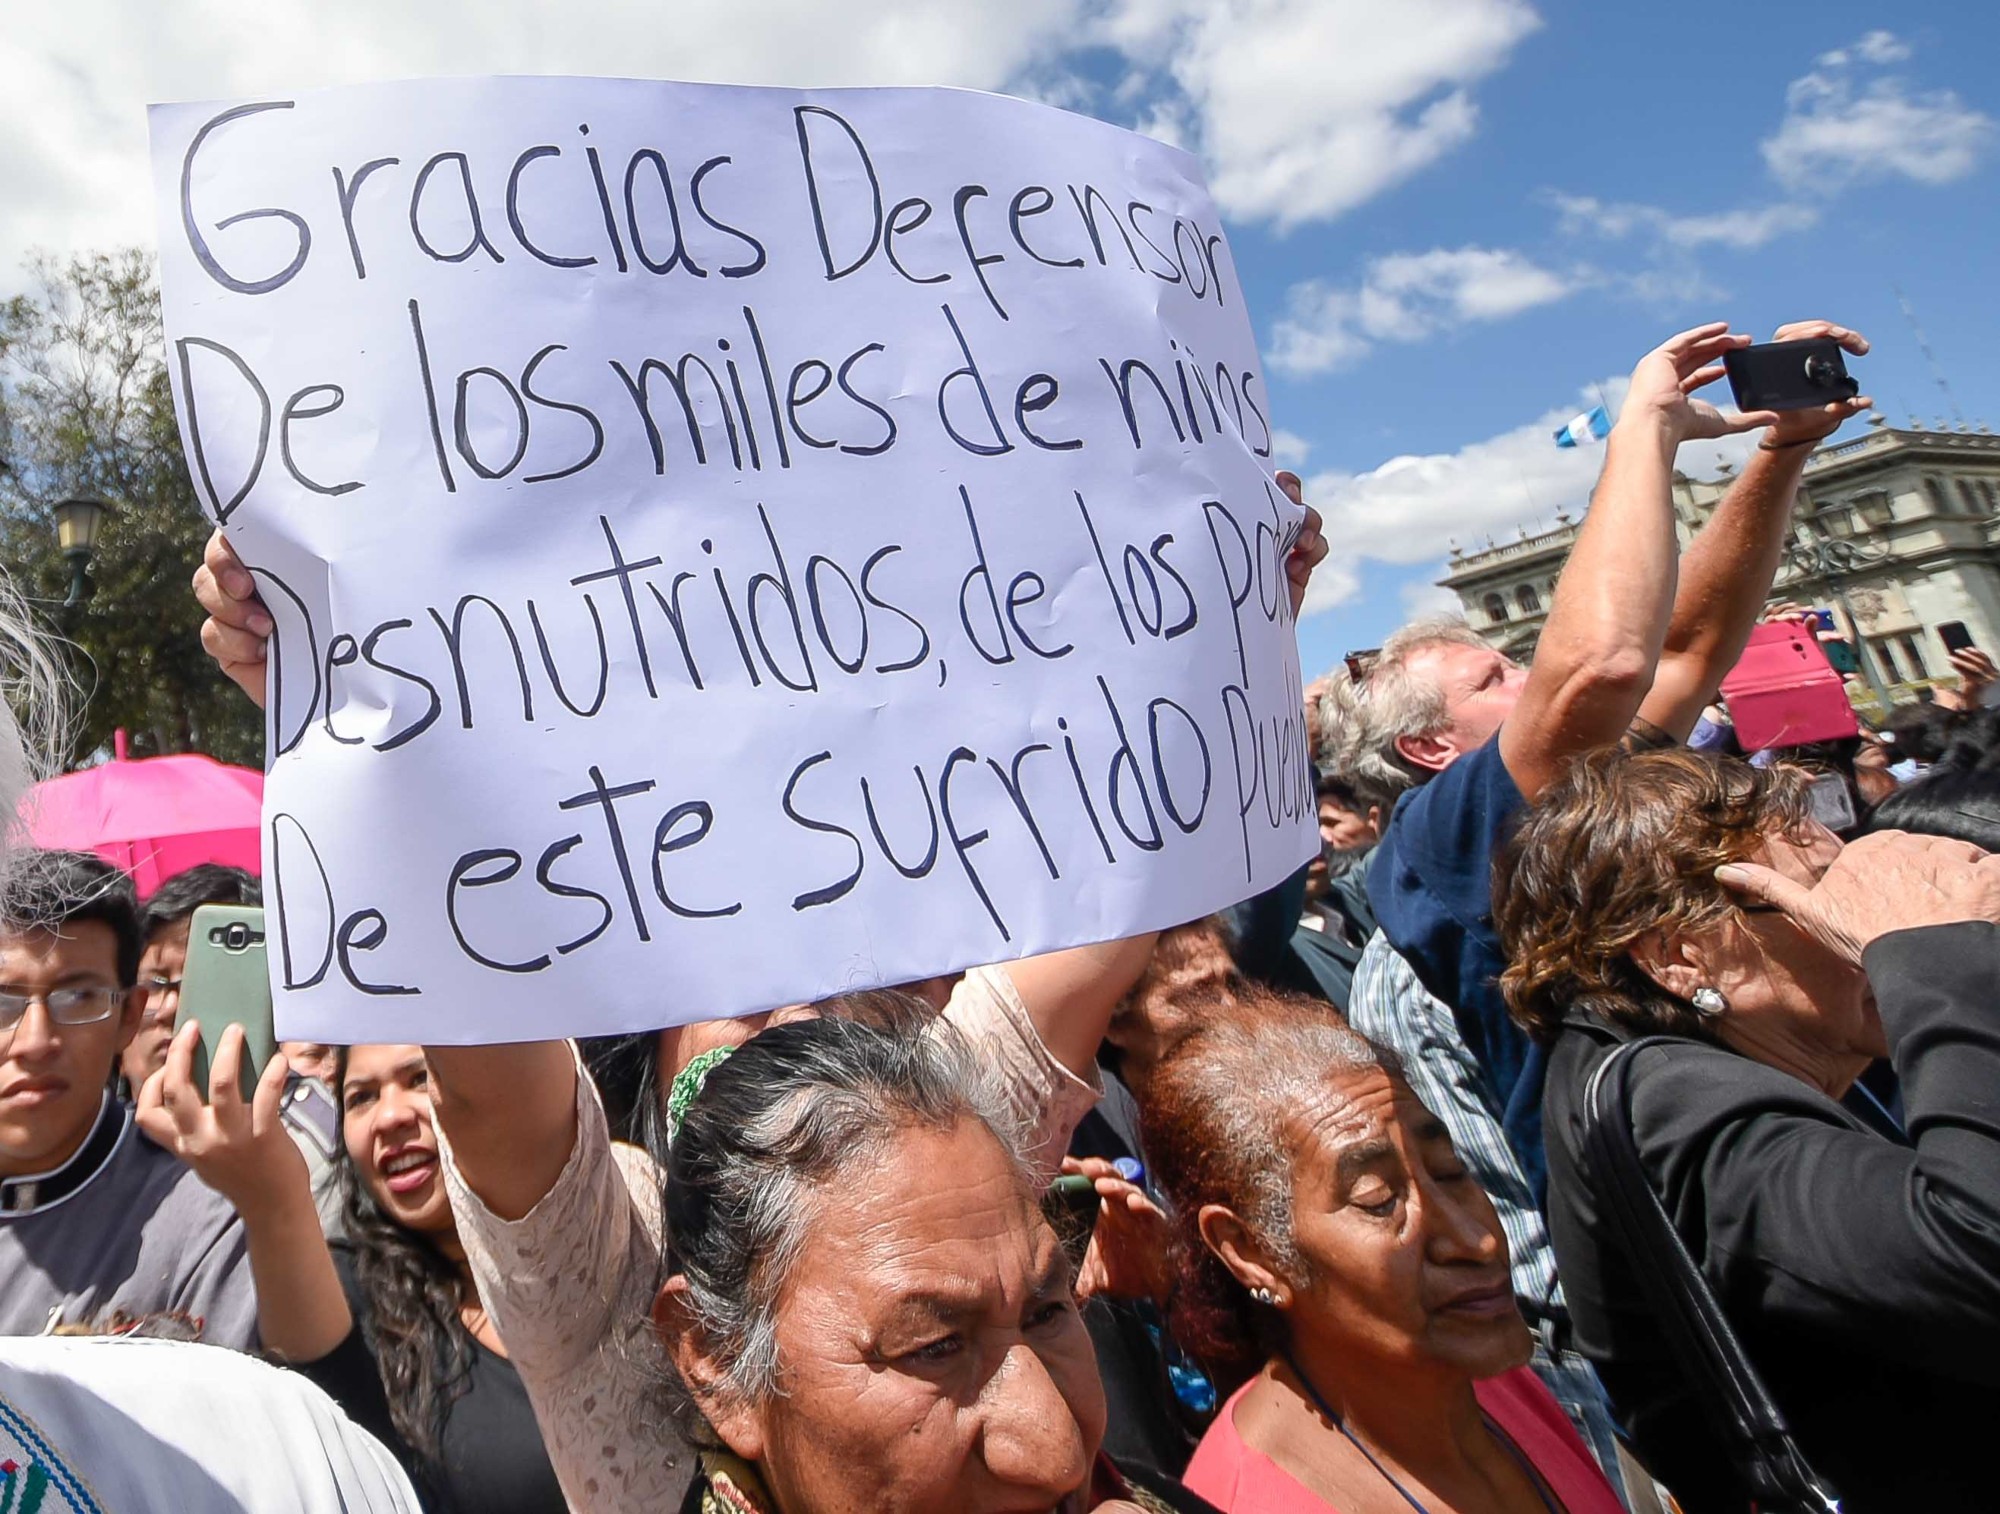 Gracias Defensor
De los miles de niños
Desnutridos, de los
De este sufrido pueblo